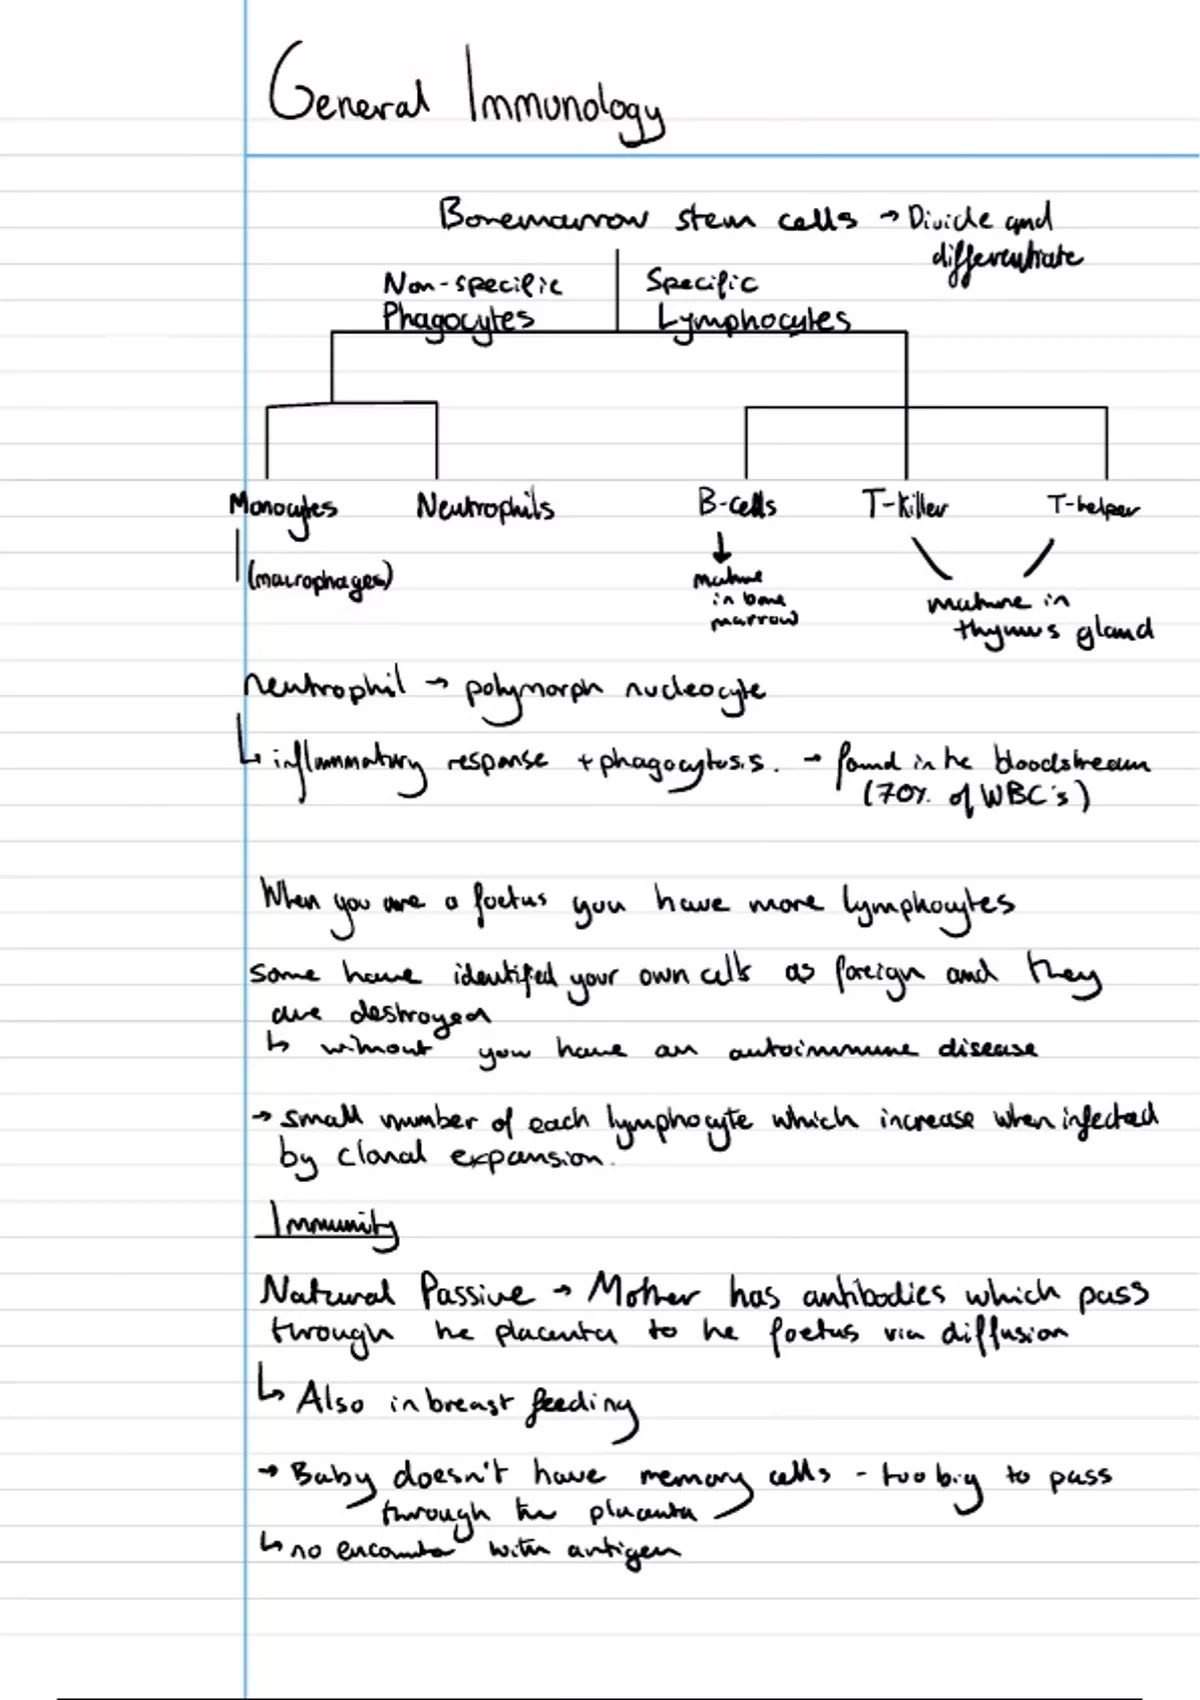 General Immunology
Bonemarrow stem cells → Divide and
differentiate
Non-specific
Phagocytes
Specific
Lymphocytes
Monocytes
Neutrophils
B-cells
T-killer
T-helper
(macrophages)
mature
in bone
marrow
mature in
thymus gland
neutrophil → polymorph nucleocyte
↳ inflammatory response + phagocytosis. → found in he bloodstream
(70% of WBC's)
When you are a foetus you have more lymphocytes
some have identified your own cells as foreign and they
are destroyed
↳ without you have an autoimmune disease
→ small number of each lymphocyte which increase when infected
by clonal expansion.
Immunity
Natural Passive → Mother has antibodies which pass
through he placenta to he foetus via diffusion
↳ Also in breast feeding
→ Baby doesn't have memory cells - too big to pass
through the placenta
↳ no encounter with antigen